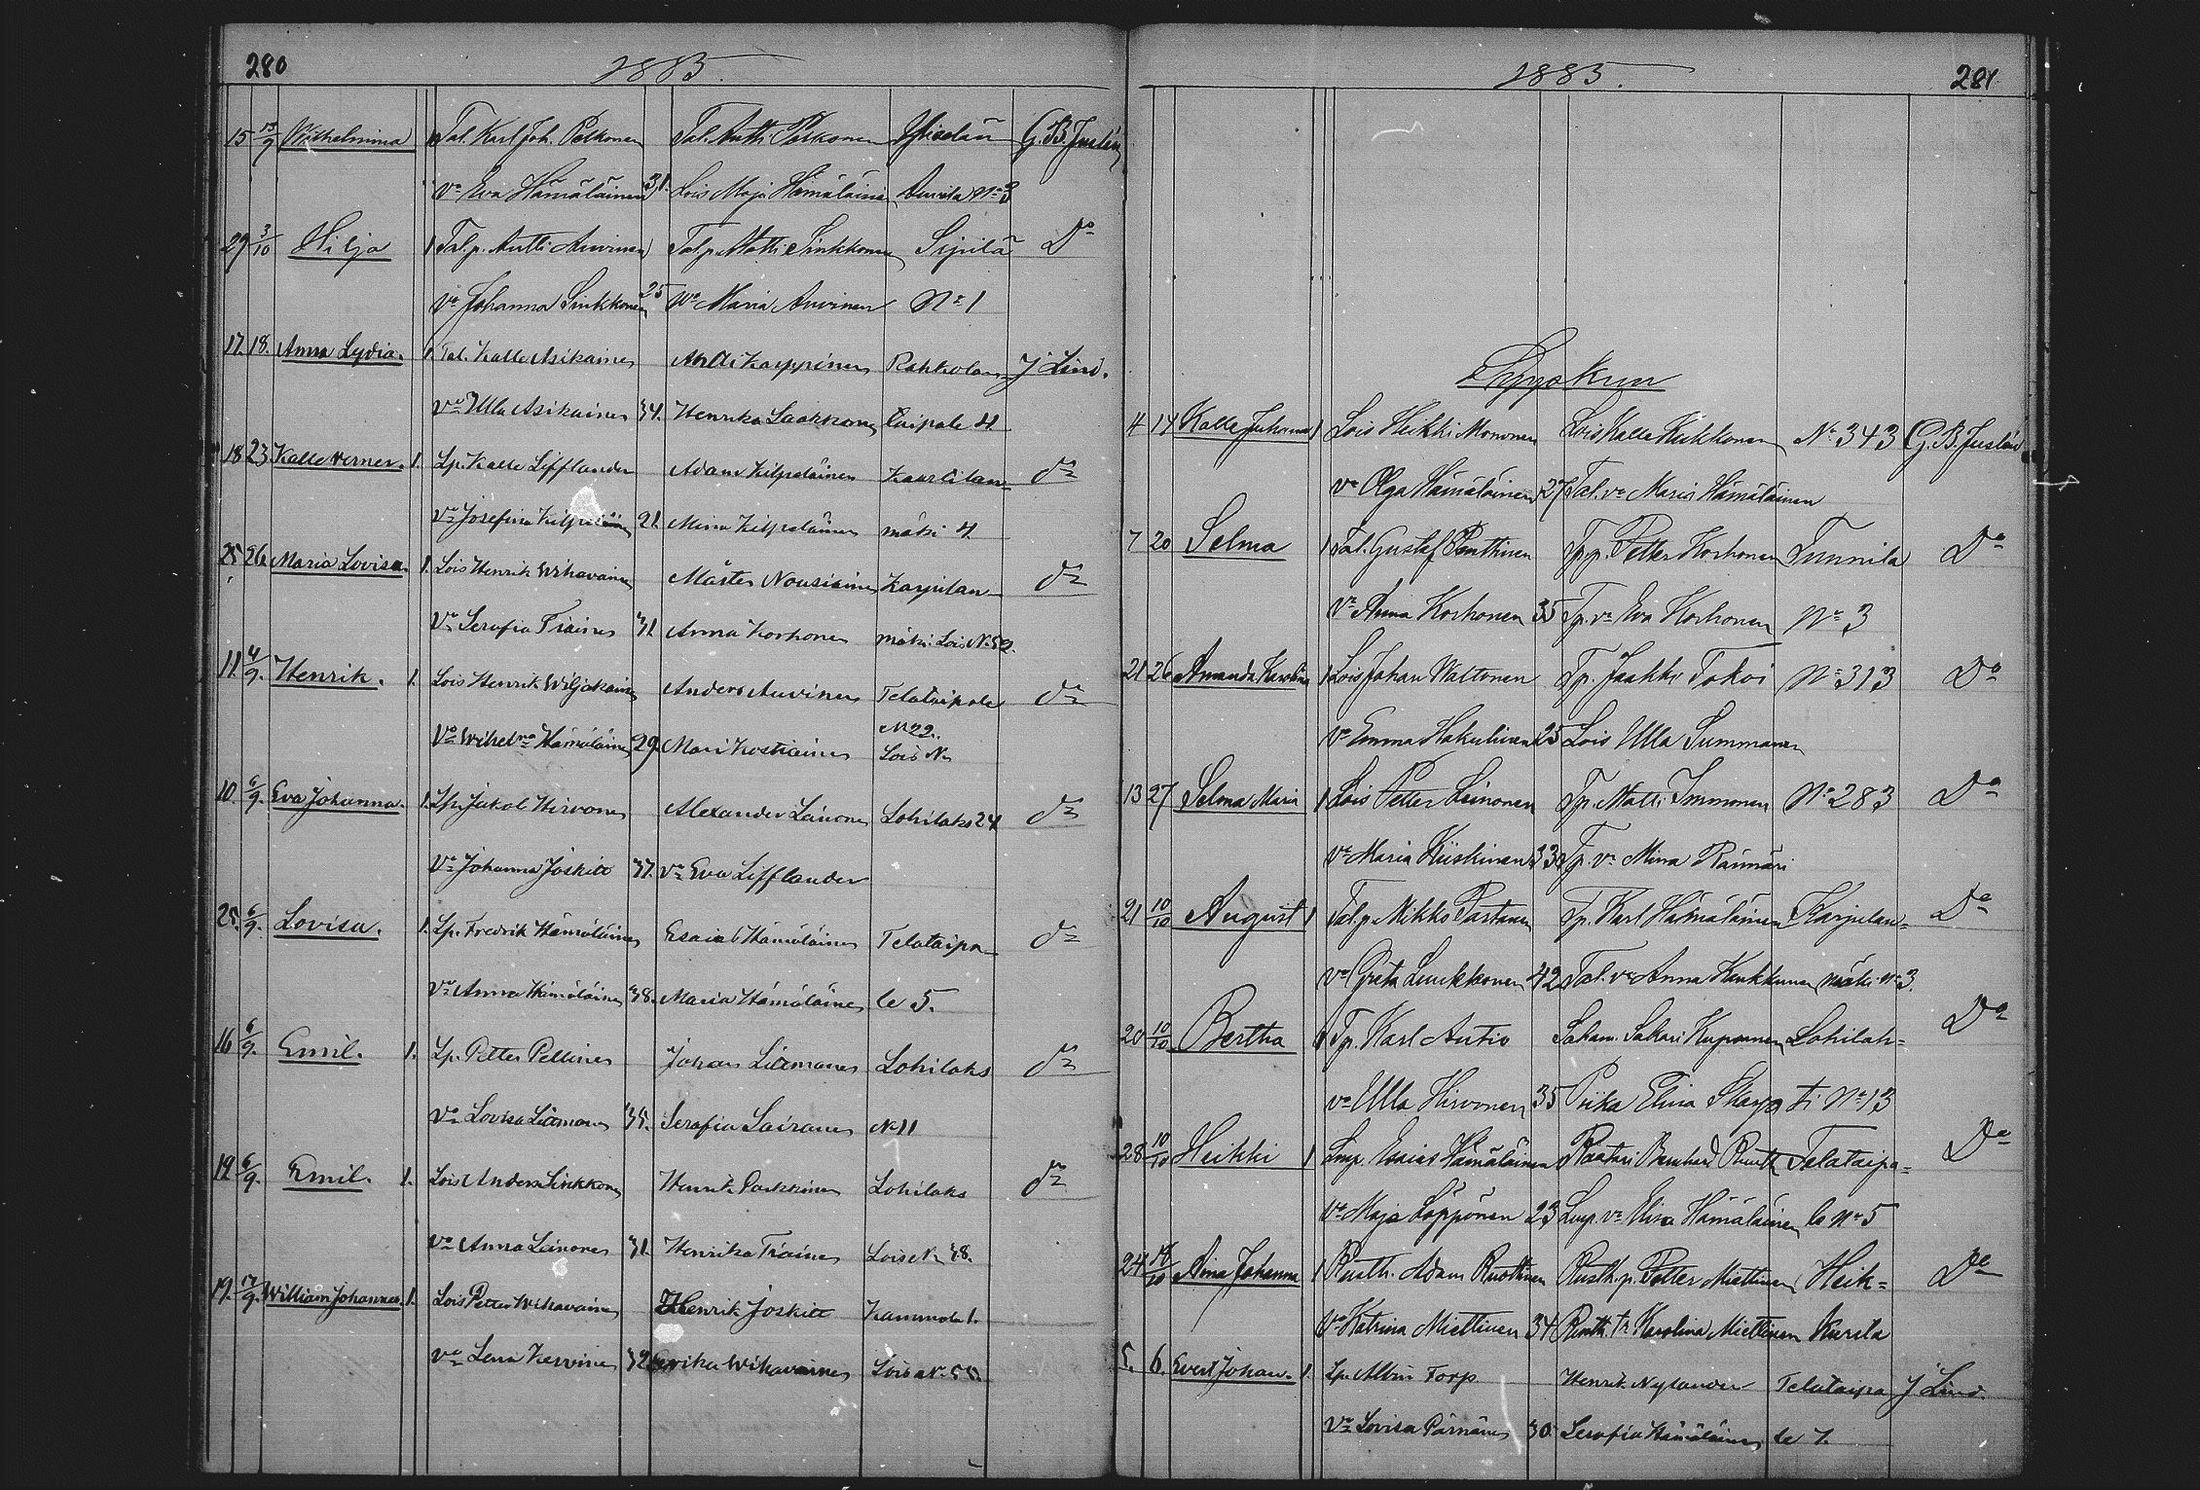 280
1885.
15 15/9 Wilhelmina 1 Tal. Karl Joh. Pelkonen Tal. Antti Pelkonen G. B. Juslén
Va Eva Hämäläinen 31. Lois Maja Hämäläinen No 3
29 3/10 Hilja 1 Tal.p. Antti Auvinen Tal.p. Matti Sinkkonen Sipilä Do
Va Johanna Sinkkonen 25 Wa Maria Auvinen No 1
17. 18. Anna Lydia. 1 Tal. Kalle Asikainen Antti Karppinen Rahkolan J Lind.
Va Ulla Asikainen 34. Henrika Laakkonen taipale 4.
18 23 Kalle Verner. 1. Lp. Kalle Lifflander Adam Kilpeläinen Kaarlilan do
Va Josefina Kilpeläinen 21. Mina Kilpeläinen mäki 4.
25 26. Maria Lovisa. 1. Lois Henrik Wihavainen Mårten Nousiainen Karjulan do
Va Serafia Tiainen 31. Anna Korhonen mäki Lois N. 52.
11 4/9. Henrik. 1. Lois Henrik Wiljakainen Anders Auvinen Telataipale do
N 22.
Va Wilhelma Hämäläinen 29. Mari Kostiainen Lois N
10. 6/9. Eva Johanna. 1. Lp. Jakob Hirvonen Alexander Länonen Lohilaks 24 do
Va Johanna Jöskitt 37. Va Eva Lifflander
25. 6/9. Lovisa. 1. Lp. Fredrik Hämäläinen Esaias Hämäläinen Telataipa do
Va Anna Hämäläinen 38. Maria Hämäläinen le 5.
16 6/9. Emil. 1. Lp. Petter Pellinen Johan Liimanen Lohilaks do
Va Lovisa Liimanen 35. Serafia Sairanen N 11
19. 6/9. Emil. 1. Lois Anders Sinkkonen Henrik Parkkinen Lohilaks do
Va Anna Länonen 31. Henrika Tiainen Lois N. 38.
19. 17/9. William Johannes. 1. Lois Petter Wihavainen Henrik Jöskitt Kammola 1.
Va Lena Kervinen 32 Wihavainen Lois N. 55.
1885.
281
Syyskuu
4 14 Kalle Juhana 1 Lois Heikki Mononen Lois Kalle No 343 G. B. Juslén
Va Olga Hämäläinen 27 Tal. va Maria Hämäläinen
7 20 Selma 1 Tal. Gustaf Penttinen Tp.p. Petter Korhonen Tunnila Do
Va Anna Korhonen 35 Tp. va Eva Korhonen No 3
21 26 Amanda Karolina 1 Lois Johan Waltonen Tp. Jaakko Tokoi No 313 Do
Va Emma Hakulinen 25 Lois Ulla Summanen
13 27 Selma Maria 1 Lois Petter Leinonen Tp. Matti Immonen No 283 Do
Va Maria Kiiskinen 33 Tp. va Mina
21 10/10 August 1 Tal.p. Mikko Partanen Tp. Karl Hämäläinen Karjulan= Do
Va Greta Luukkonen 42 Tal. va Anna Kaukkunen mäki No 3.
20 10/10 Bertha 1 Tp. Karl Autio Sakari Kuparinen Lohilah= Do
va Ulla Hirvonen 35 Piika Elina Skarp ti No 13
28 10/10 Heikki 1 Lmp. Esaias Hämäläinen Raatari Bernhard Ruuth Telataipa= Do
Va Maja Löppönen 23 Lmp. va Elisa Hämäläinen le No 5
24 18/10 Aina Johanna 1 Rusth. Adam Ruottinen Rusth.p. Petter Miettinen Heik= Do
Va Katrina Miettinen 34 Rusth. tr Karolina Miettinen Kurila
5. 6. Evert Johan. 1. Lp. Albin Forp Henrik Nylander Telataipa J Lind.
Va Lovisa Pärnänen 30. Serafia Hämäläinen le 7.